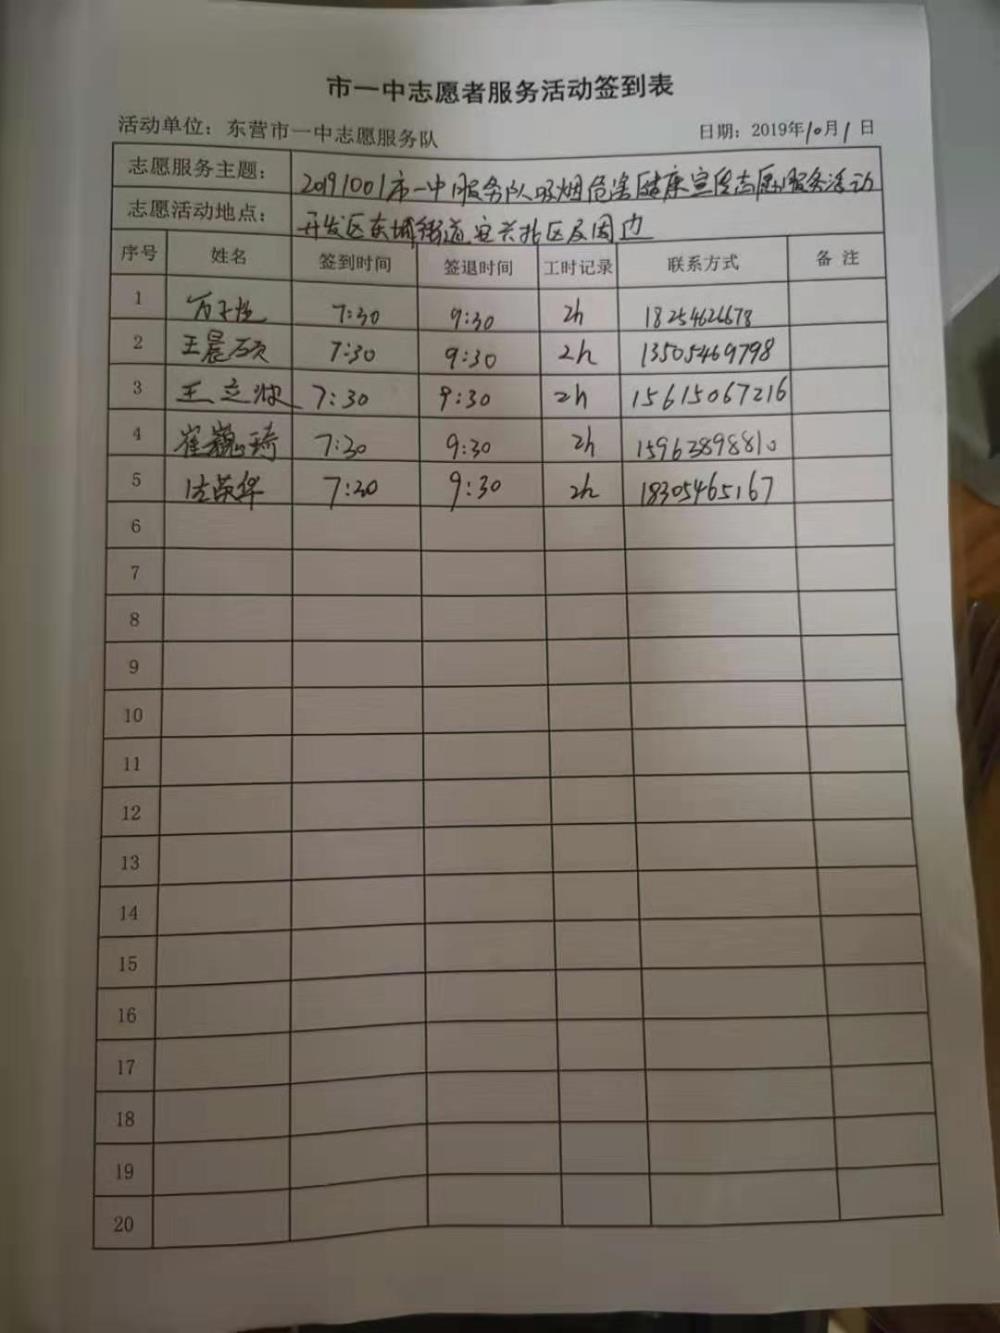 市一中志愿者服务活动签到表
活动单位：东营市一中志愿服务队 日期：2019年10月1日
志愿服务主题： 20191001市一中服务队吸烟危害健康宣传志愿服务活动
志愿活动地点： 开发区东城街道安兴北区及周边
序号 姓名 签到时间 签退时间 工时记录 联系方式 备注
1 7:30 9:30 2h 18254626678
2 王晨硕 7:30 9:30 2h 13505469798
3 王立 7:30 9:30 2h 15615067216
4 崔巍琦 7:30 9:30 2h 15963898810
5 荣华 7:30 9:30 2h 18305465167
6
7
8
9
10
11
12
13
14
15
16
17
18
19
20